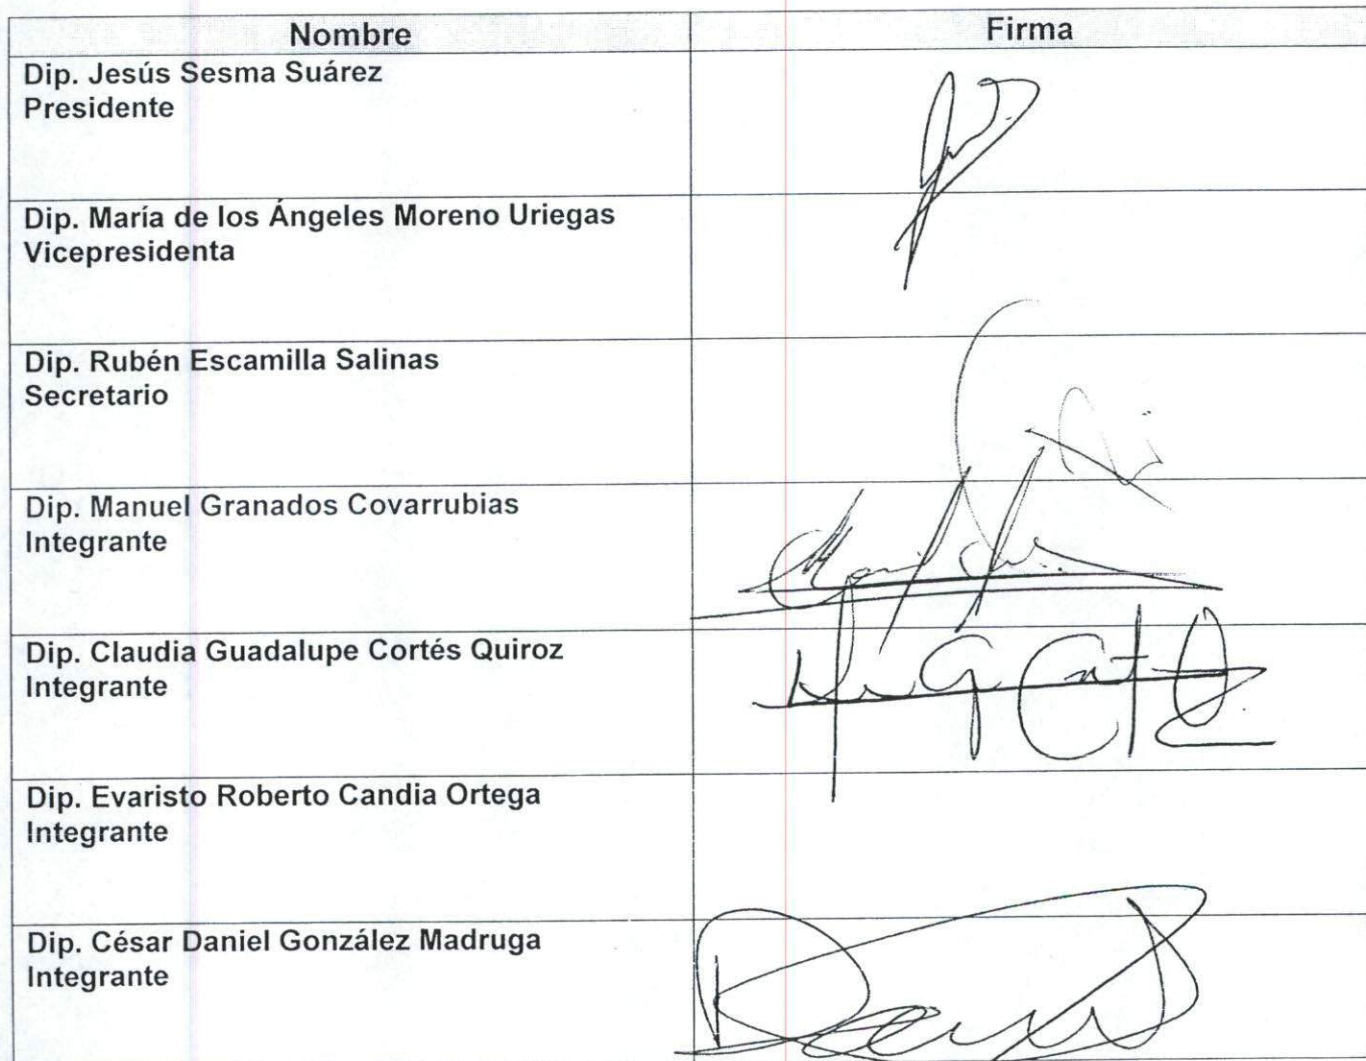 Nombre Firma
Dip. Jesús Sesma Suárez
Presidente
Dip. María de los Ángeles Moreno Uriegas
Vicepresidenta
Dip. Rubén Escamilla Salinas
Secretario
Dip. Manuel Granados Covarrubias
Integrante
Dip. Claudia Guadalupe Cortés Quiroz
Integrante
Dip. Evaristo Roberto Candia Ortega
Integrante
Dip. César Daniel González Madruga
Integrante